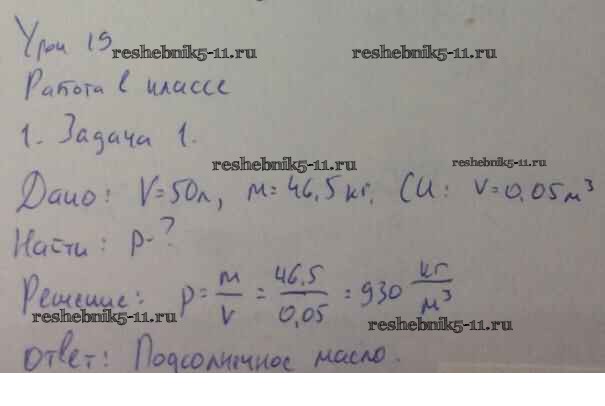 Урок 19
reshebnik5-11.ru reshebnik5-11.ru
Работа в классе
1. Задача 1.
reshebnik5-11.ru reshebnik5-11.ru
Дано: V=50л, m=46,5 кг. СИ: V=0,05м³
Найти: ρ-?
Решение: ρ = m/V = 46,5/0,05 = 930 кг/м³
reshebnik5-11.ru reshebnik5-11.ru
Ответ: Подсолнечное масло.